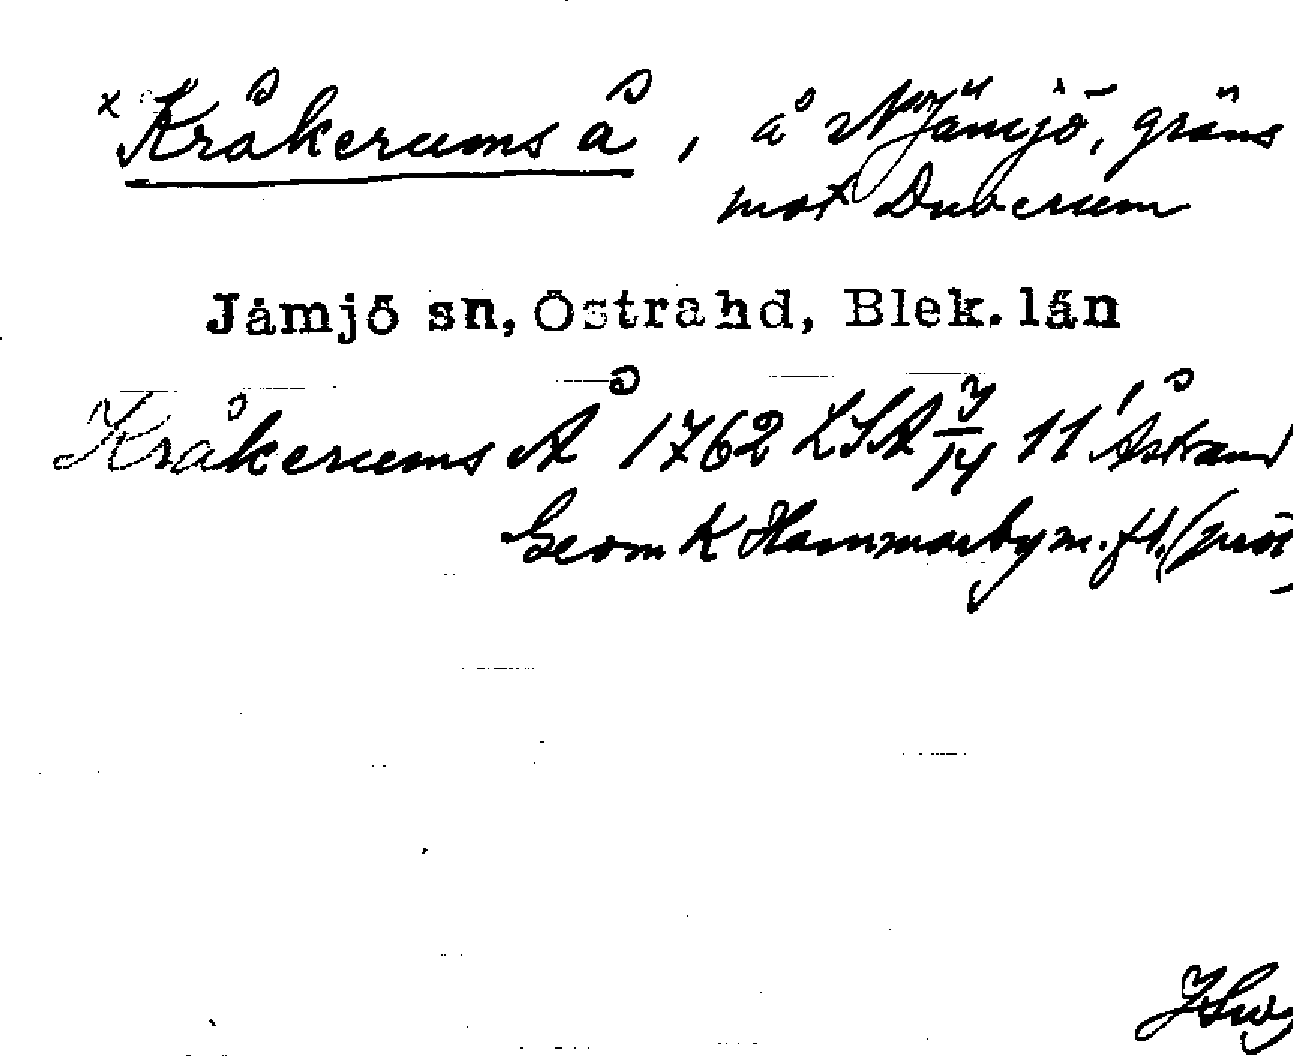 x Kråkerums å, å N Jämjö, gräns
mot Duverum
Jämjö sn, Östra hd, Blek. län
Kråkerums Å 1762 LSA J/14 11 Åstrand
Geom K Hammarby m. fl. (prot
JSw